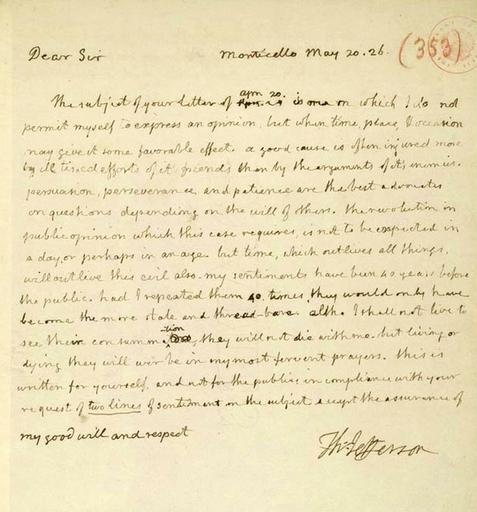 Dear Sir Monticello May 20. 26. (353)
The subject of your letter of apr. 20. is one on which I do not
permit myself to express an opinion, but when time, place, & occasion
may give it some favorable effect. a good cause is often injured more
by ill timed efforts of it's friends than by the arguments of it's enemies.
persuasion, perseverance, and patience are the best advocates
on questions depending on the will of others. the revolution in
public opinion which this case requires, is not to be expected in
a day, or perhaps in an age. but time, which outlives all things,
will outlive this evil also. my sentiments have been 40. years before
the public. had I repeated them 40. times, they would only have
become the more stale and thread-bare. altho I shall not live to
see them consummation, they will not die with me. but living or
dying they will ever be in my most fervent prayers. this is
written for yourself, and not for the public; in compliance with your
request of two lines of sentiment on the subject. accept the assurance of
my good will and respect
Th: Jefferson